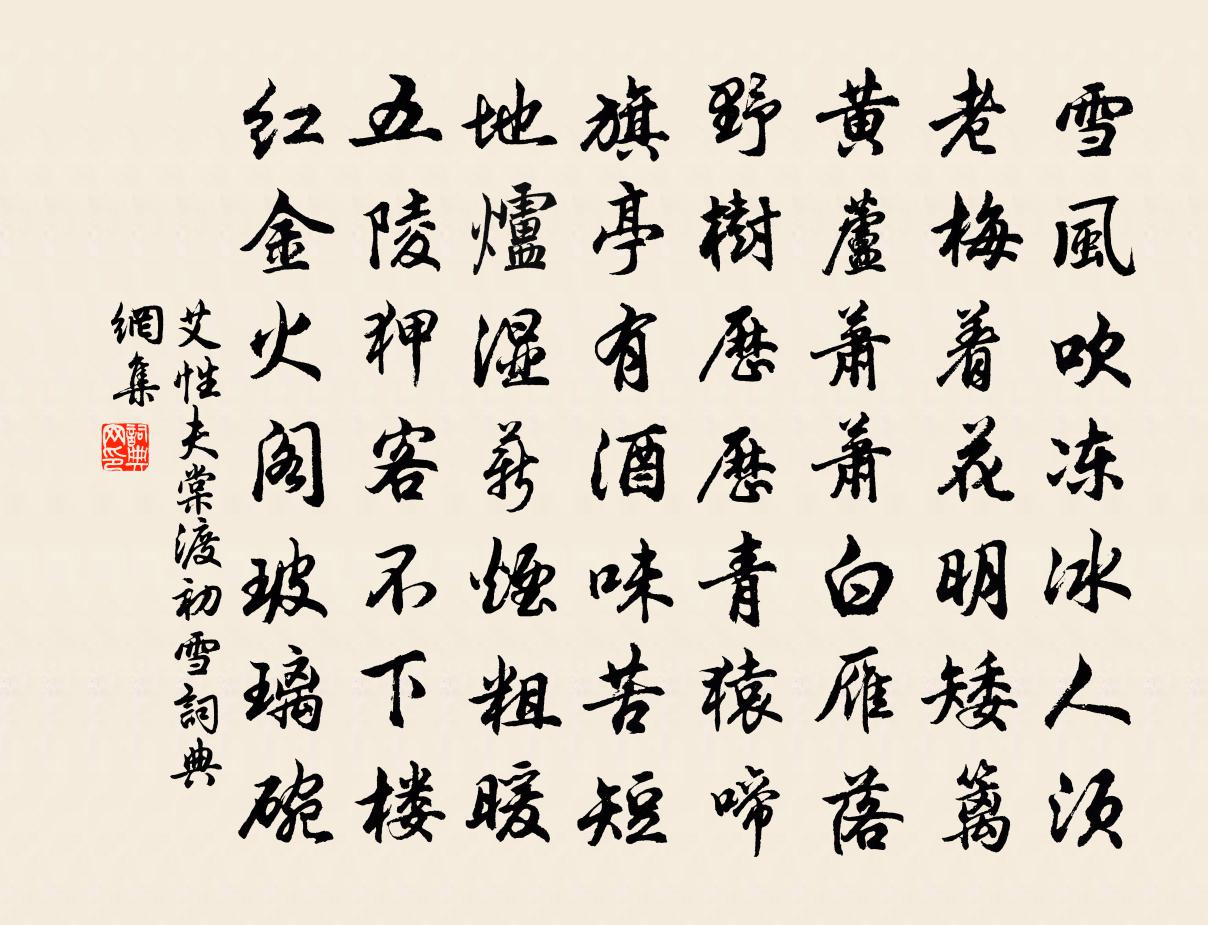 雪風吹冻冰人须
老梅着花明矮篱
黄蘆萧萧白雁落
野樹歷歷青猿啼
旗亭有酒味苦短
地爐湿薪煙粗暖
五陵狎客不下楼
红金火阁玻璃碗
艾性夫棠渡初雪詞典
網集
詞典
网印